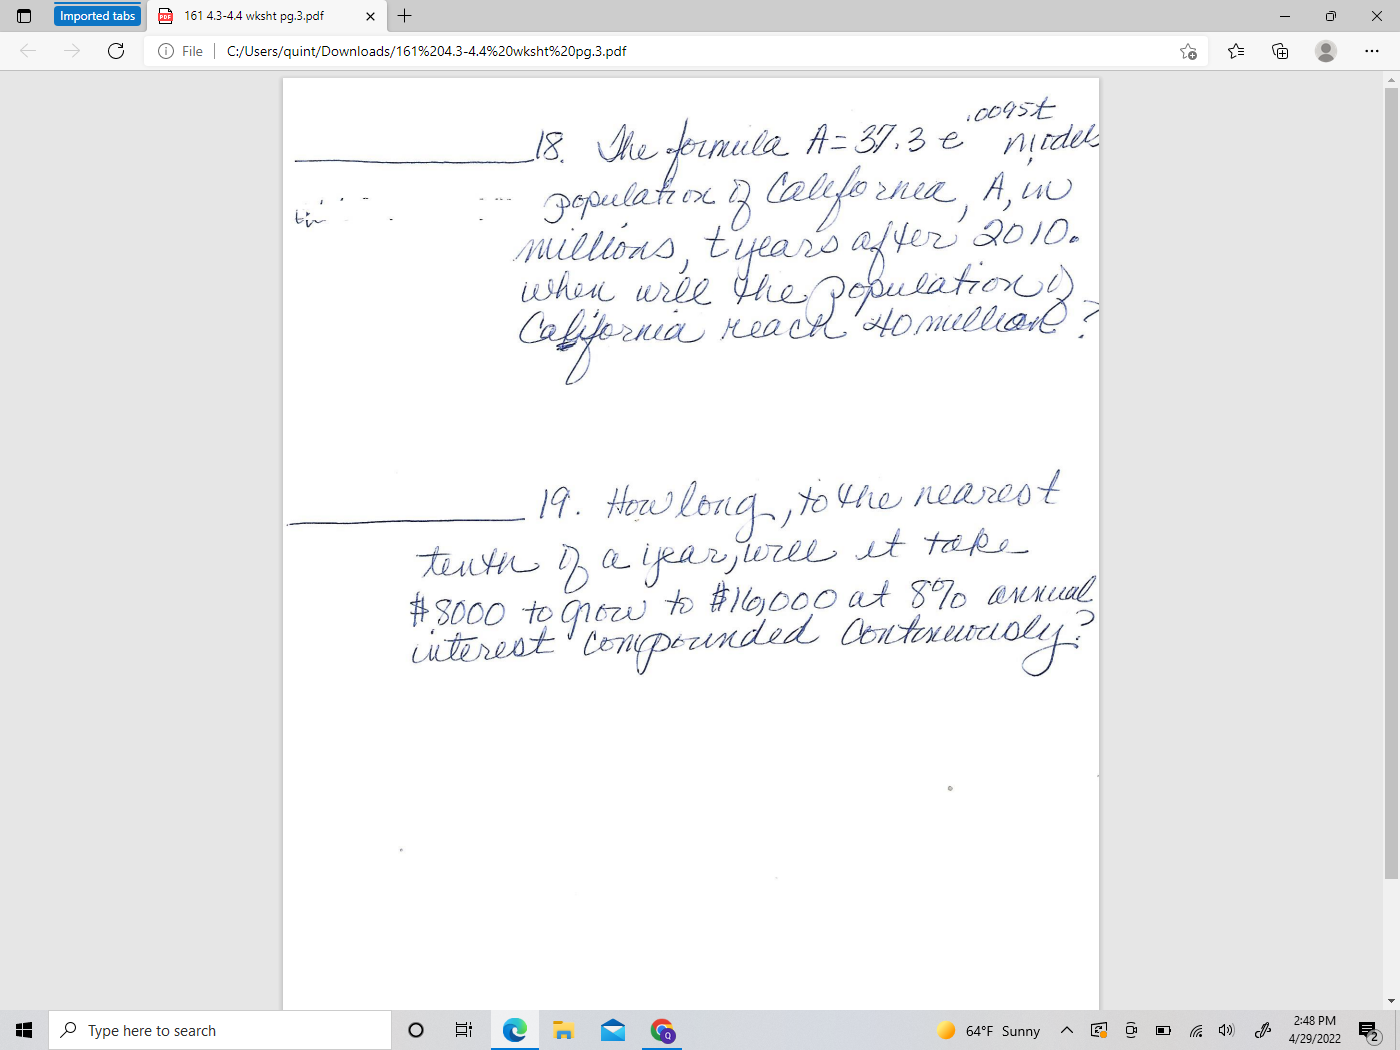 Imported tabs
161 4.3-4.4 wksht pg.3.pdf
File
C:/Users/quint/Downloads/161%204.3-4.4%20wksht%20pg.3.pdf
18. The formula A = 37.3 e^.0095t models
population of California, A, in
millions, t years after 2010.
when will the population of
California reach 40 million?
19. How long, to the nearest
tenth of a year, will it take
$8000 to grow to $16,000 at 8% annual
interest compounded continuously?
Type here to search
64°F Sunny
2:48 PM
4/29/2022
2